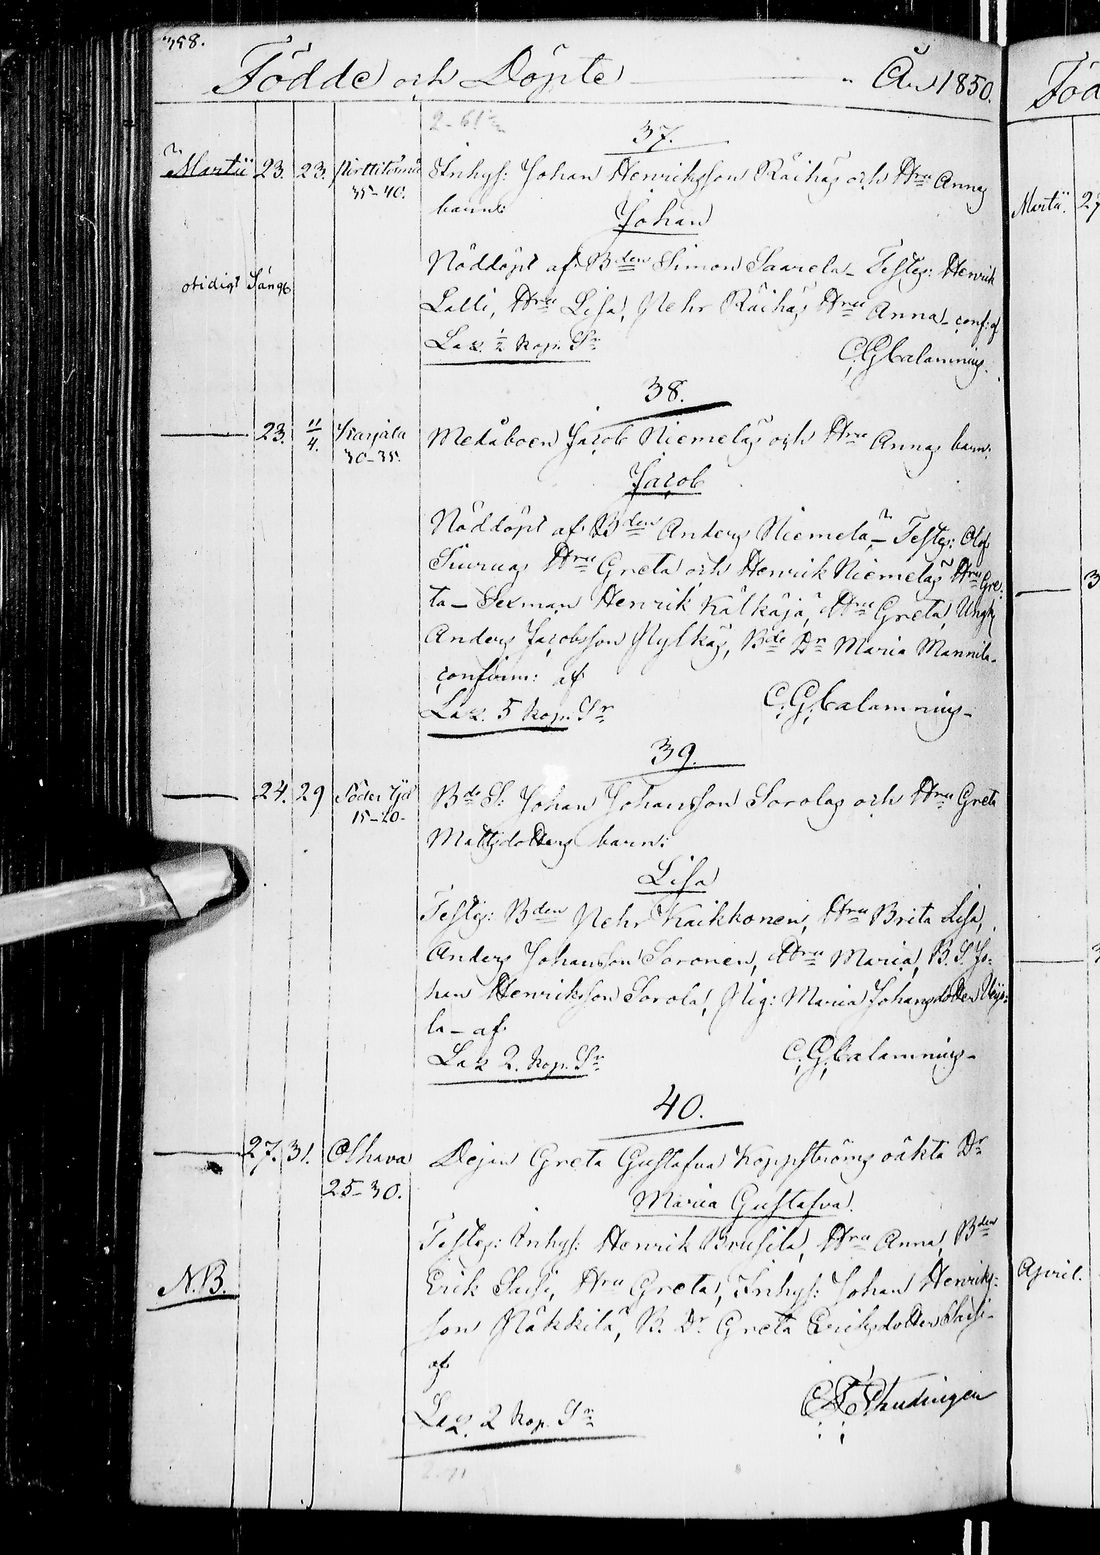 398.
Födde och Döpte År 1850.
37.
Martii 23. 23. Pirttiniemi Inhys: Johan Henriksson Räihäs och Hru Annas
35-40. barn:
Johan
Nöddöpt af Bden Simon Saarela - Testes: Henrik
otidigt Säng
Lalli, Hru Lisa, Pehr Räihä, Hru Anna - conf: af
La z. ½ kop. Sr
C.G. Calamnius.
38.
23. 11/4. Karjala Medåboen Jacob Niemeläs och Hru Annas barn:
30-35.
Jacob
Nöddöpt af Bden Anders Niemelä - Testes: Olof
Siurua, Hru Greta och Henrik Niemelä, Hru Gre-
ta - Sexman Henrik Kälkäjä, Hru Greta, Ung
Anders Jacobsson Pylkäs, Bde Dr Maria Mannila -
confirm: af
La z. 5 kop. Sr
C.G. Calamnius -
39.
24. 29 Bde S: Johan Johansson Sorolas och Hru Greta
15-20. Mattsdotters barn:
Lisa
Testes: Bden Pehr Kaikkonen, Hru Brita Lisa,
Anders Johansson Soronen, Hru Maria, B. S. Jo-
han Henriksson Sorola, Pig: Maria Johansdotter
la - af
La z 2. kop. Sr
C.G. Calamnius -
40.
27. 31. Olhava Dejan Greta Gustafva Koppströms oäkta Dr
25-30.
Maria Gustafva.
Testes: Inhys: Henrik Brusila, Hru Anna, Bden
N.B. Erik Saisi, Hru Greta, Inhys: Johan Henriks-
son Näkkilä, B. Dr Greta Eriksdotter Saisi -
af
La z. 2 kop. Sr
Föd
Martii. 27
3
April.